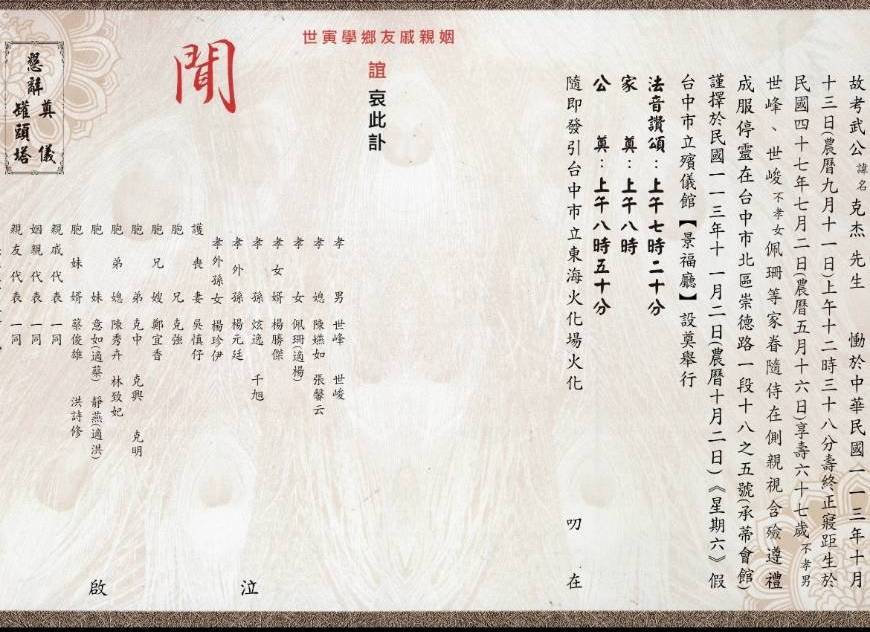 故考武公諱名克杰先生 慟於中華民國一一三年十月
十三日(農曆九月十一日)上午十二時三十八分壽終正寢距生於
民國四十七年七月二日(農曆五月十六日)享壽六十七歲不孝男
世峰、世峻不孝女佩珊等家眷隨侍在側親視含殮遵禮
成服停靈在台中市北區崇德路一段十八之五號(承蒂會館)
謹擇於民國一一三年十一月二日(農曆十月二日)《星期六》假
台中市立殯儀館【景福廳】設奠舉行
法音讚頌：上午七時二十分
家 奠：上午八時
公 奠：上午八時五十分
隨即發引台中市立東海火化場火化
叨 在
姻親戚友鄉學寅世
誼 哀此訃
聞
孝 男 世峰 世峻
媳 陳嬿如 張馨云
孝 女 佩珊(適楊)
孝女婿 楊勝傑
孝 孫 炫逸 千旭
孝外孫 楊元廷
孝外孫女 楊珍伊
護喪妻 吳慎伃
胞 兄 克強
胞兄嫂 鄭宜香
胞 弟 克中 克興 克明
胞弟媳 陳秀卉 林致妃
胞 妹 意如(適蔡) 靜燕(適洪)
胞妹婿 蔡俊雄 洪詩修
親戚代表 一同
姻親代表 一同
親友代表 一同
泣 啟
懇辭 奠儀
罐頭塔